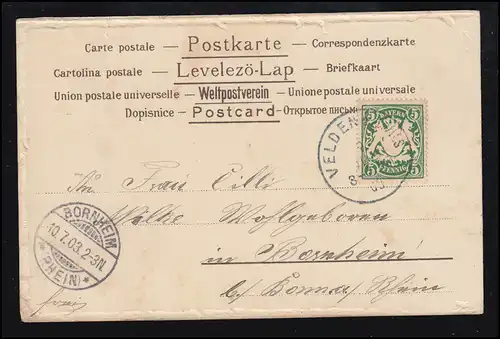 Carte postale — Postkarte — Correspondenzkarte
Cartolina postale — Levelezö-Lap — Briefkaart
Union postale universelle — Weltpostverein — Unione postale universale
Dopisnice — Postcard — Открытое письмо
VELDEN
8
03
BAYERN
5 5
5 PFENNIG 5
An Frau Cilli
Wohlgeboren
in Bornheim
b/ Bonn a/ Rhein
BORNHEIM
10.7.03. 2-3N.
* (RHEIN) *
frei